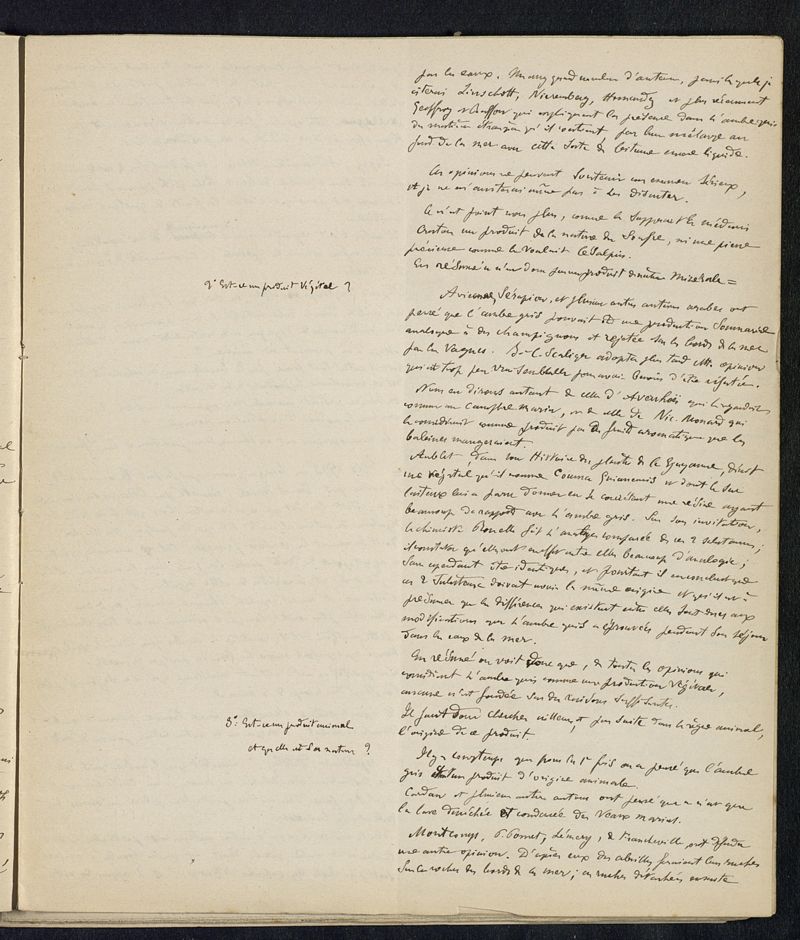 par les eaux. Un assez grand nombre d'auteurs, parmi lesquels je
citerai Linschott, Nieremberg, et plus récemment
Geoffroy et Buffon qui expliquent la présence dans l'ambre gris
de matières étrangères qu'il contient, par leur mélange au
fond de la mer avec cette sorte de bitume encore liquide.
Ces opinions ne peuvent soutenir un examen sérieux,
et je ne m'arrêterai même pas à les discuter.
Ce n'est point non plus, comme le supposent les médecins
un produit de la nature du soufre, ni une pierre
précieuse comme le voulait Césalpin.
En résumé ce n'est donc pas un produit de nature minérale =
2° Est-ce un produit végétal ?
Avicenne, Sérapion, et plusieurs autres auteurs arabes ont
pensé que l'ambre gris pouvait être une production sousmarine
analogue à des champignons et rejetée sur les bords de la mer
par les vagues. J.-C. Scaliger adopta plus tard cette opinion
qui est trop peu vraisemblable pour avoir besoin d'être réfutée.
Nous en dirons autant de celle d'Averrhoès qui le regardait
comme un camphre marin, ou de celle de Nic. Monard qui
le considérait comme produit par des fruits aromatiques que les
baleines mangeraient.
Aublet, dans son Histoire des plantes de la Guyane, décrit
un végétal qu'il nomme Couma Guianensis et dont le suc
laiteux lui a paru donner en se concrétant une résine ayant
beaucoup de rapports avec l'ambre gris. Sur son invitation,
le chimiste Rouelle fit l'analyse comparée de ces 2 substances;
il constata qu'elles ont en effet entre elles beaucoup d'analogie;
sans cependant être identiques, et pourtant il en conclut que
ces 2 substances doivent avoir la même origine et qu'il est à
présumer que les différences qui existent entre elles sont dues aux
modifications que l'ambre gris a éprouvées pendant son séjour
dans les eaux de la mer.
En résumé on voit donc que, de toutes les opinions qui
considèrent l'ambre gris comme une production végétale,
aucune n'est fondée sur des raisons suffisantes.
Il faut donc chercher ailleurs, et par suite dans le règne animal,
l'origine de ce produit.
3° Est-ce un produit animal
et quelle est sa nature ?
Il y a longtemps que pour la 1e fois on a pensé que l'ambre
gris était un produit d'origine animale.
Cardan et plusieurs autres auteurs ont pensé que ce n'est que
la bave desséchée et condensée des veaux marins.
Montconys, P. Pomet, Lémery, & Francheville ont défendu
une autre opinion. D'après eux des abeilles feraient leurs ruches
sur les rochers des bords de la mer; ces ruches détachées ensuite